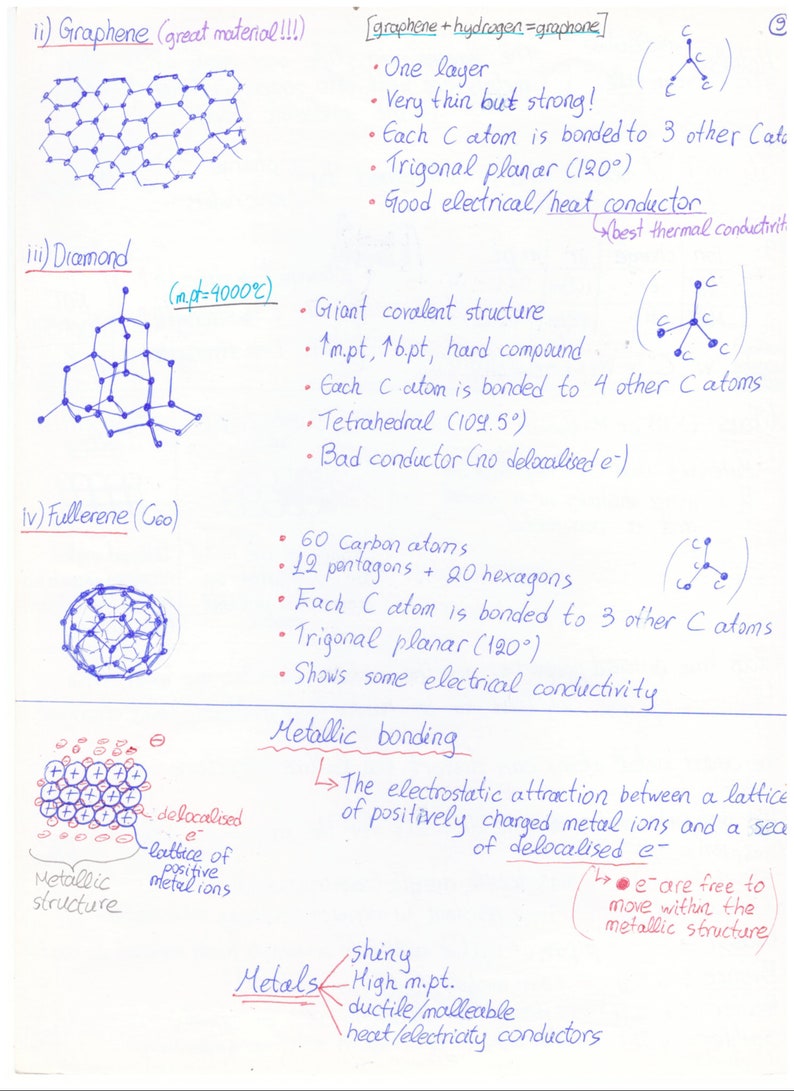 9
ii) Graphene (great material!!!)
[graphene + hydrogen = graphone]
• One layer
• Very thin but strong!
• Each C atom is bonded to 3 other C ato
• Trigonal planar (120°)
• Good electrical/heat conductor
↳(best thermal conductivit
C
C
C
C
iii) Diamond
(m.pt=4000°C)
• Giant covalent structure
• ↑m.pt, ↑b.pt, hard compound
• Each C atom is bonded to 4 other C atoms
• Tetrahedral (109.5°)
• Bad conductor (no delocalised e⁻)
C
C
C
C
C
iv) Fullerene (C60)
• 60 Carbon atoms
• 12 pentagons + 20 hexagons
• Each C atom is bonded to 3 other C atoms
• Trigonal planar (120°)
• Shows some electrical conductivity
C
C
C
C
Metallic bonding
↳ The electrostatic attraction between a lattice
of positively charged metal ions and a sea
of delocalised e⁻
(↳ • e⁻ are free to
move within the
metallic structure)
delocalised
e⁻
lattice of
positive
metal ions
Metallic
structure
Metals
shiny
High m.pt.
ductile/malleable
heat/electricity conductors